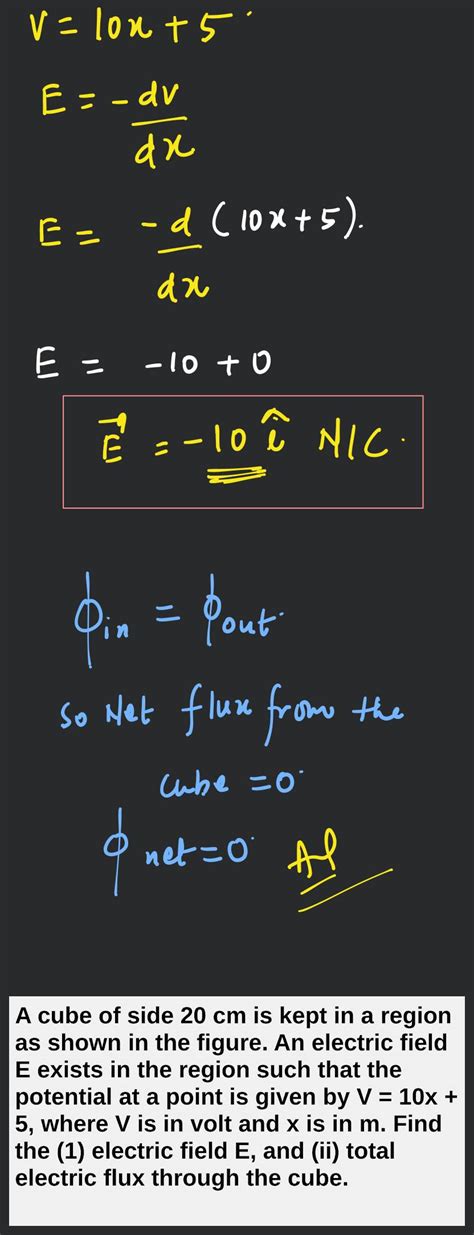 V = 10x + 5
E = -dv/dx
E = -d/dx (10x + 5).
E = -10 + 0
E⃗ = -10 î N/C.
ϕin = ϕout.
so Net flux from the
cube = 0.
ϕ net = 0.
A cube of side 20 cm is kept in a region
as shown in the figure. An electric field
E exists in the region such that the
potential at a point is given by V = 10x +
5, where V is in volt and x is in m. Find
the (1) electric field E, and (ii) total
electric flux through the cube.